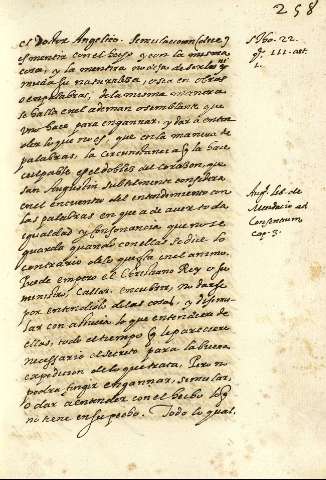 258
el Doctor Angelico. Simulacion sobre y
es mentira con el hecho y con la misma
cosa; y la mentira no desa de ser lo ni
muda su naturaleza, o sea en obras
o en palabras, de la misma manera
se halla en el ademan o semblante que
uno hace para engannar, y dar à enten
der lo que no es, que en la manera de
palabras. la circunstancia q la hace
culpable es el doblez del corazon, que
san Augustin subtilmente considera
en el encuentro del entendimiento con
las palabras en que a de aver toda
igualdad y consonancia que no se
guarda quando con ellas se dice lo
contrario de lo que esta en el animo.
Puede empero el Christiano Rey o su
ministro, Callar, encubrir, no darse
por entendido de las cosas, y disimu
lar con los que entendiere de
ellas, todo el tiempo q le pareciere
necessario el secreto para la buena
expedicion de lo que trata. Pero no
podra fingir engannar, simular,
o dar a entender con el hecho lo q
no tiene en su pecho. Todo lo qual,
S. tho. 22.
q. 111. art.
1.
Aug. lib. de
Mendacio ad
Consentium
cap. 3.